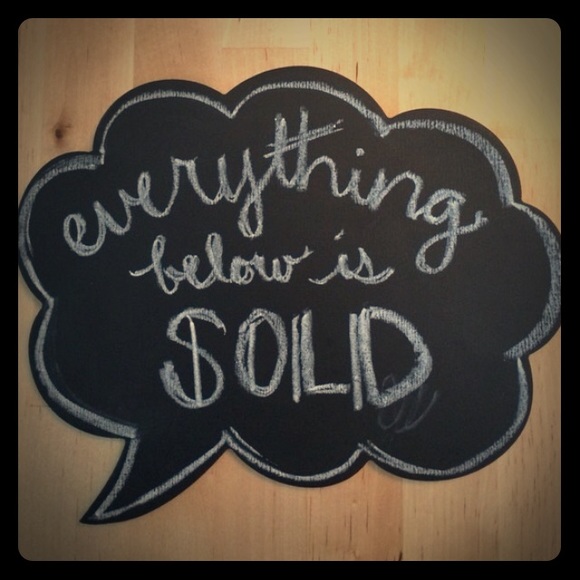 everything
below is
SOLD